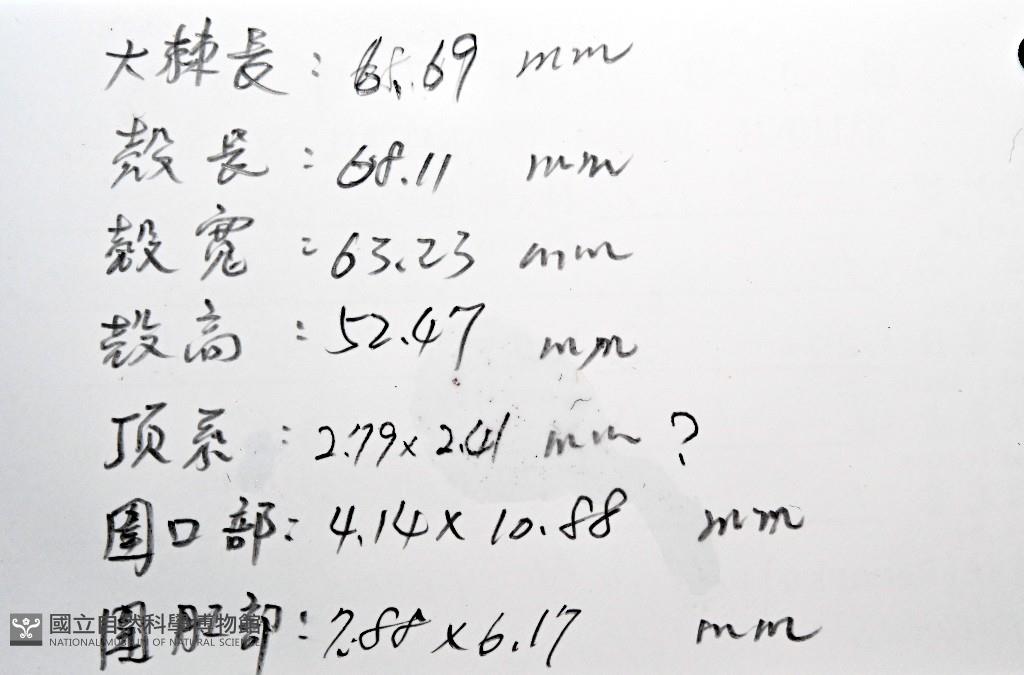 大棘長: 65.69 mm
殼長: 68.11 mm
殼寬: 63.23 mm
殼高: 52.47 mm
頂系: 2.79 x 2.41 mm ?
圍口部: 4.14 x 10.88 mm
圍肛部: 7.88 x 6.17 mm
國立自然科學博物館
NATIONAL MUSEUM OF NATURAL SCIENCE